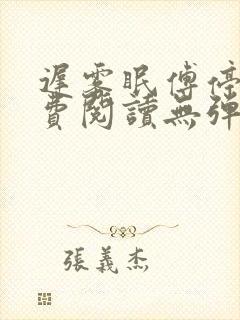 遲雲眠傅停
費閱讀無彈
張義杰